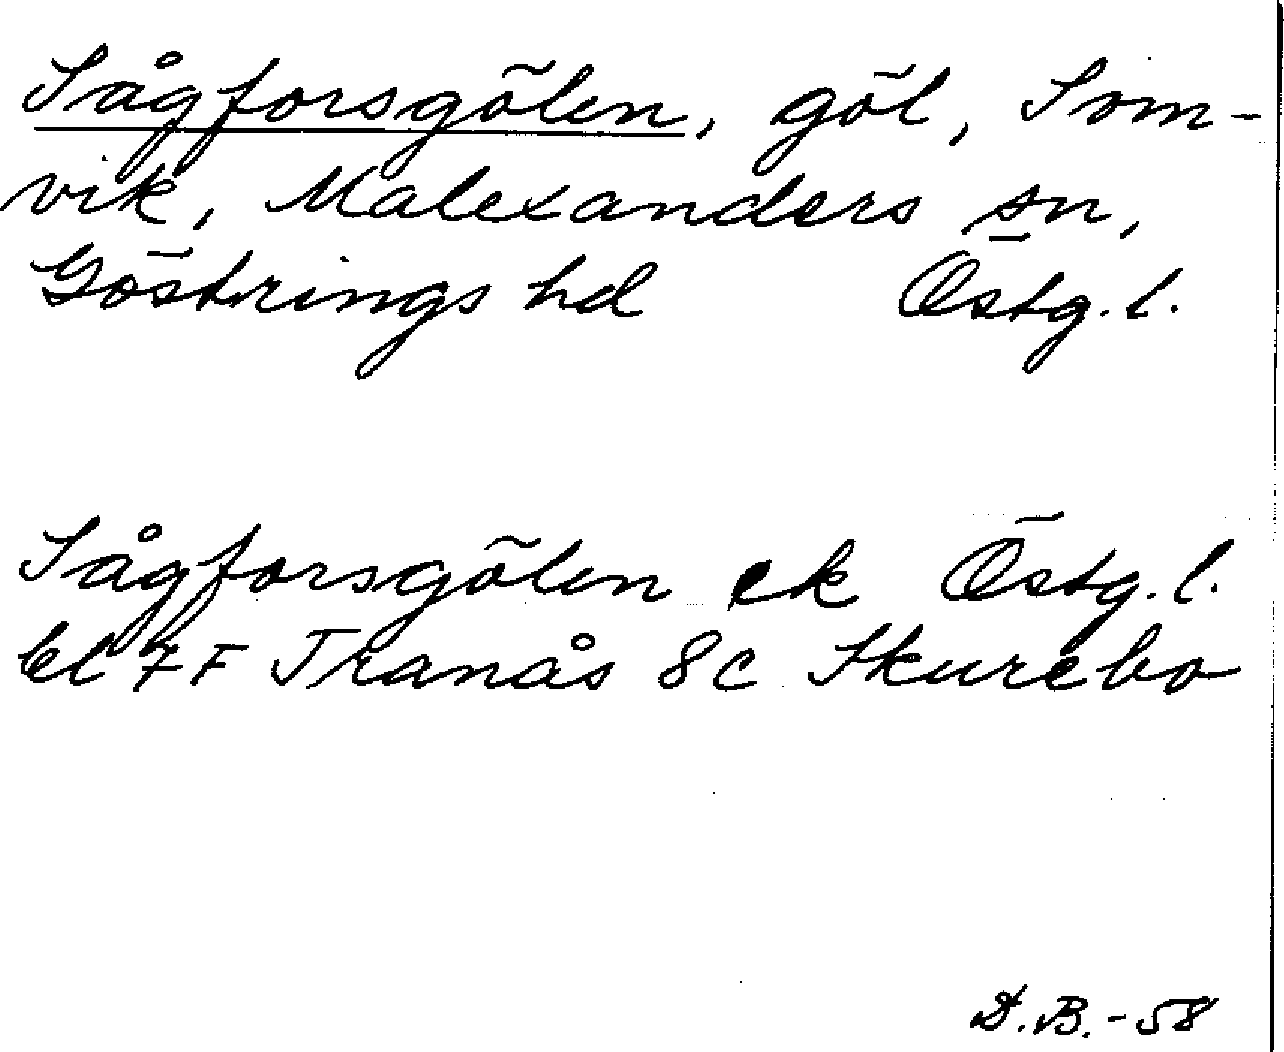 Sågforsgölen, göl, Som-
vik, Malexanders sn,
Göstrings hd Östg. l.
Sågforsgölen ek Östg. l.
bl 7 F Tranås 8c Skurebo
D.B. - 58